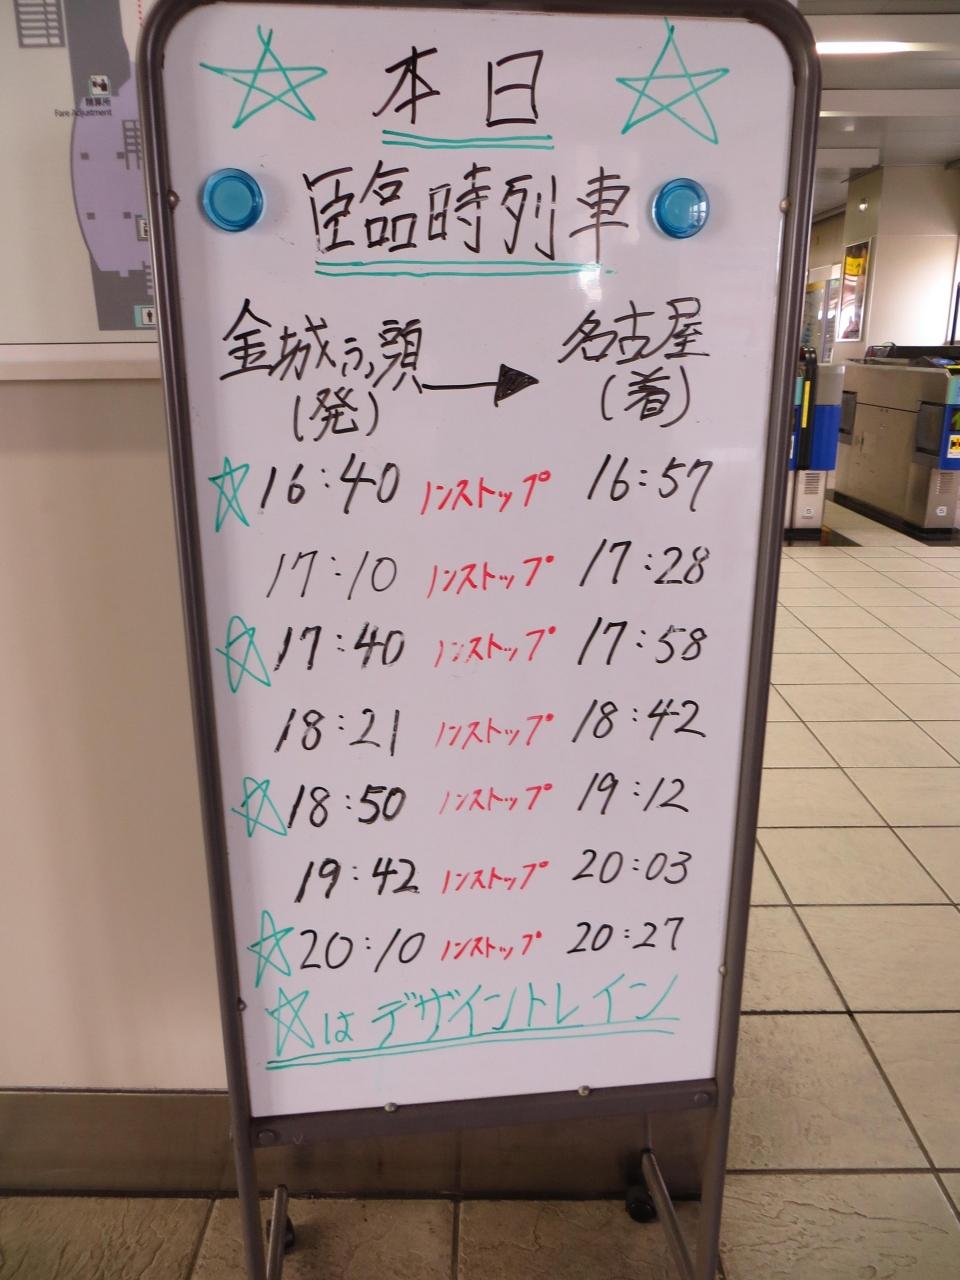 精算所
Fare Adjustment
☆ 本日 ☆
臨時列車
金城ふ頭 → 名古屋
(発) (着)
☆ 16:40 ノンストップ 16:57
17:10 ノンストップ 17:28
☆ 17:40 ノンストップ 17:58
18:21 ノンストップ 18:42
☆ 18:50 ノンストップ 19:12
19:42 ノンストップ 20:03
☆ 20:10 ノンストップ 20:27
☆はデザイントレイン